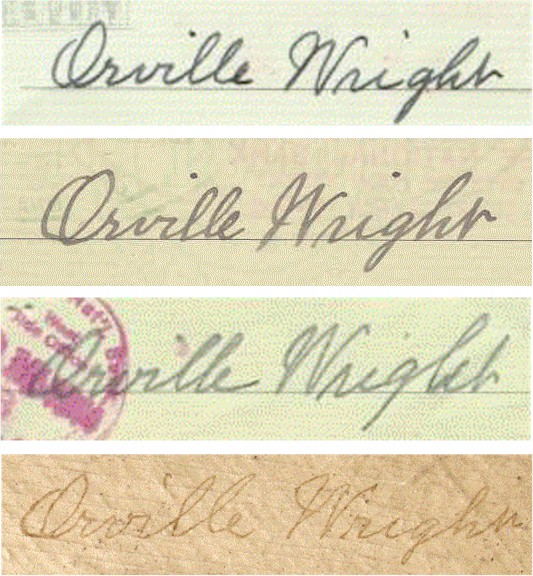 Orville Wright
Orville Wright
Orville Wright
Orville Wright